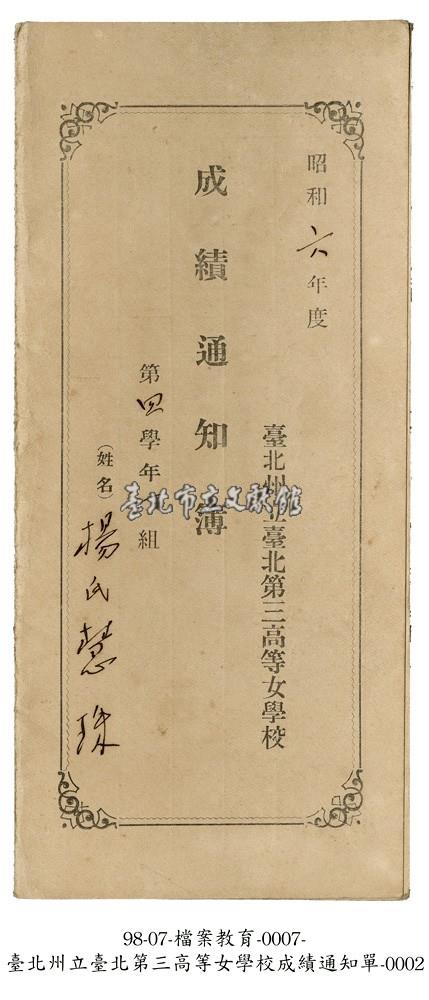 昭和六年度
臺北州立臺北第三高等女學校
成績通知簿
第四學年 組
(姓名)楊氏慧珠
臺北市立文獻館
98-07-檔案教育-0007-
臺北州立臺北第三高等女學校成績通知單-0002